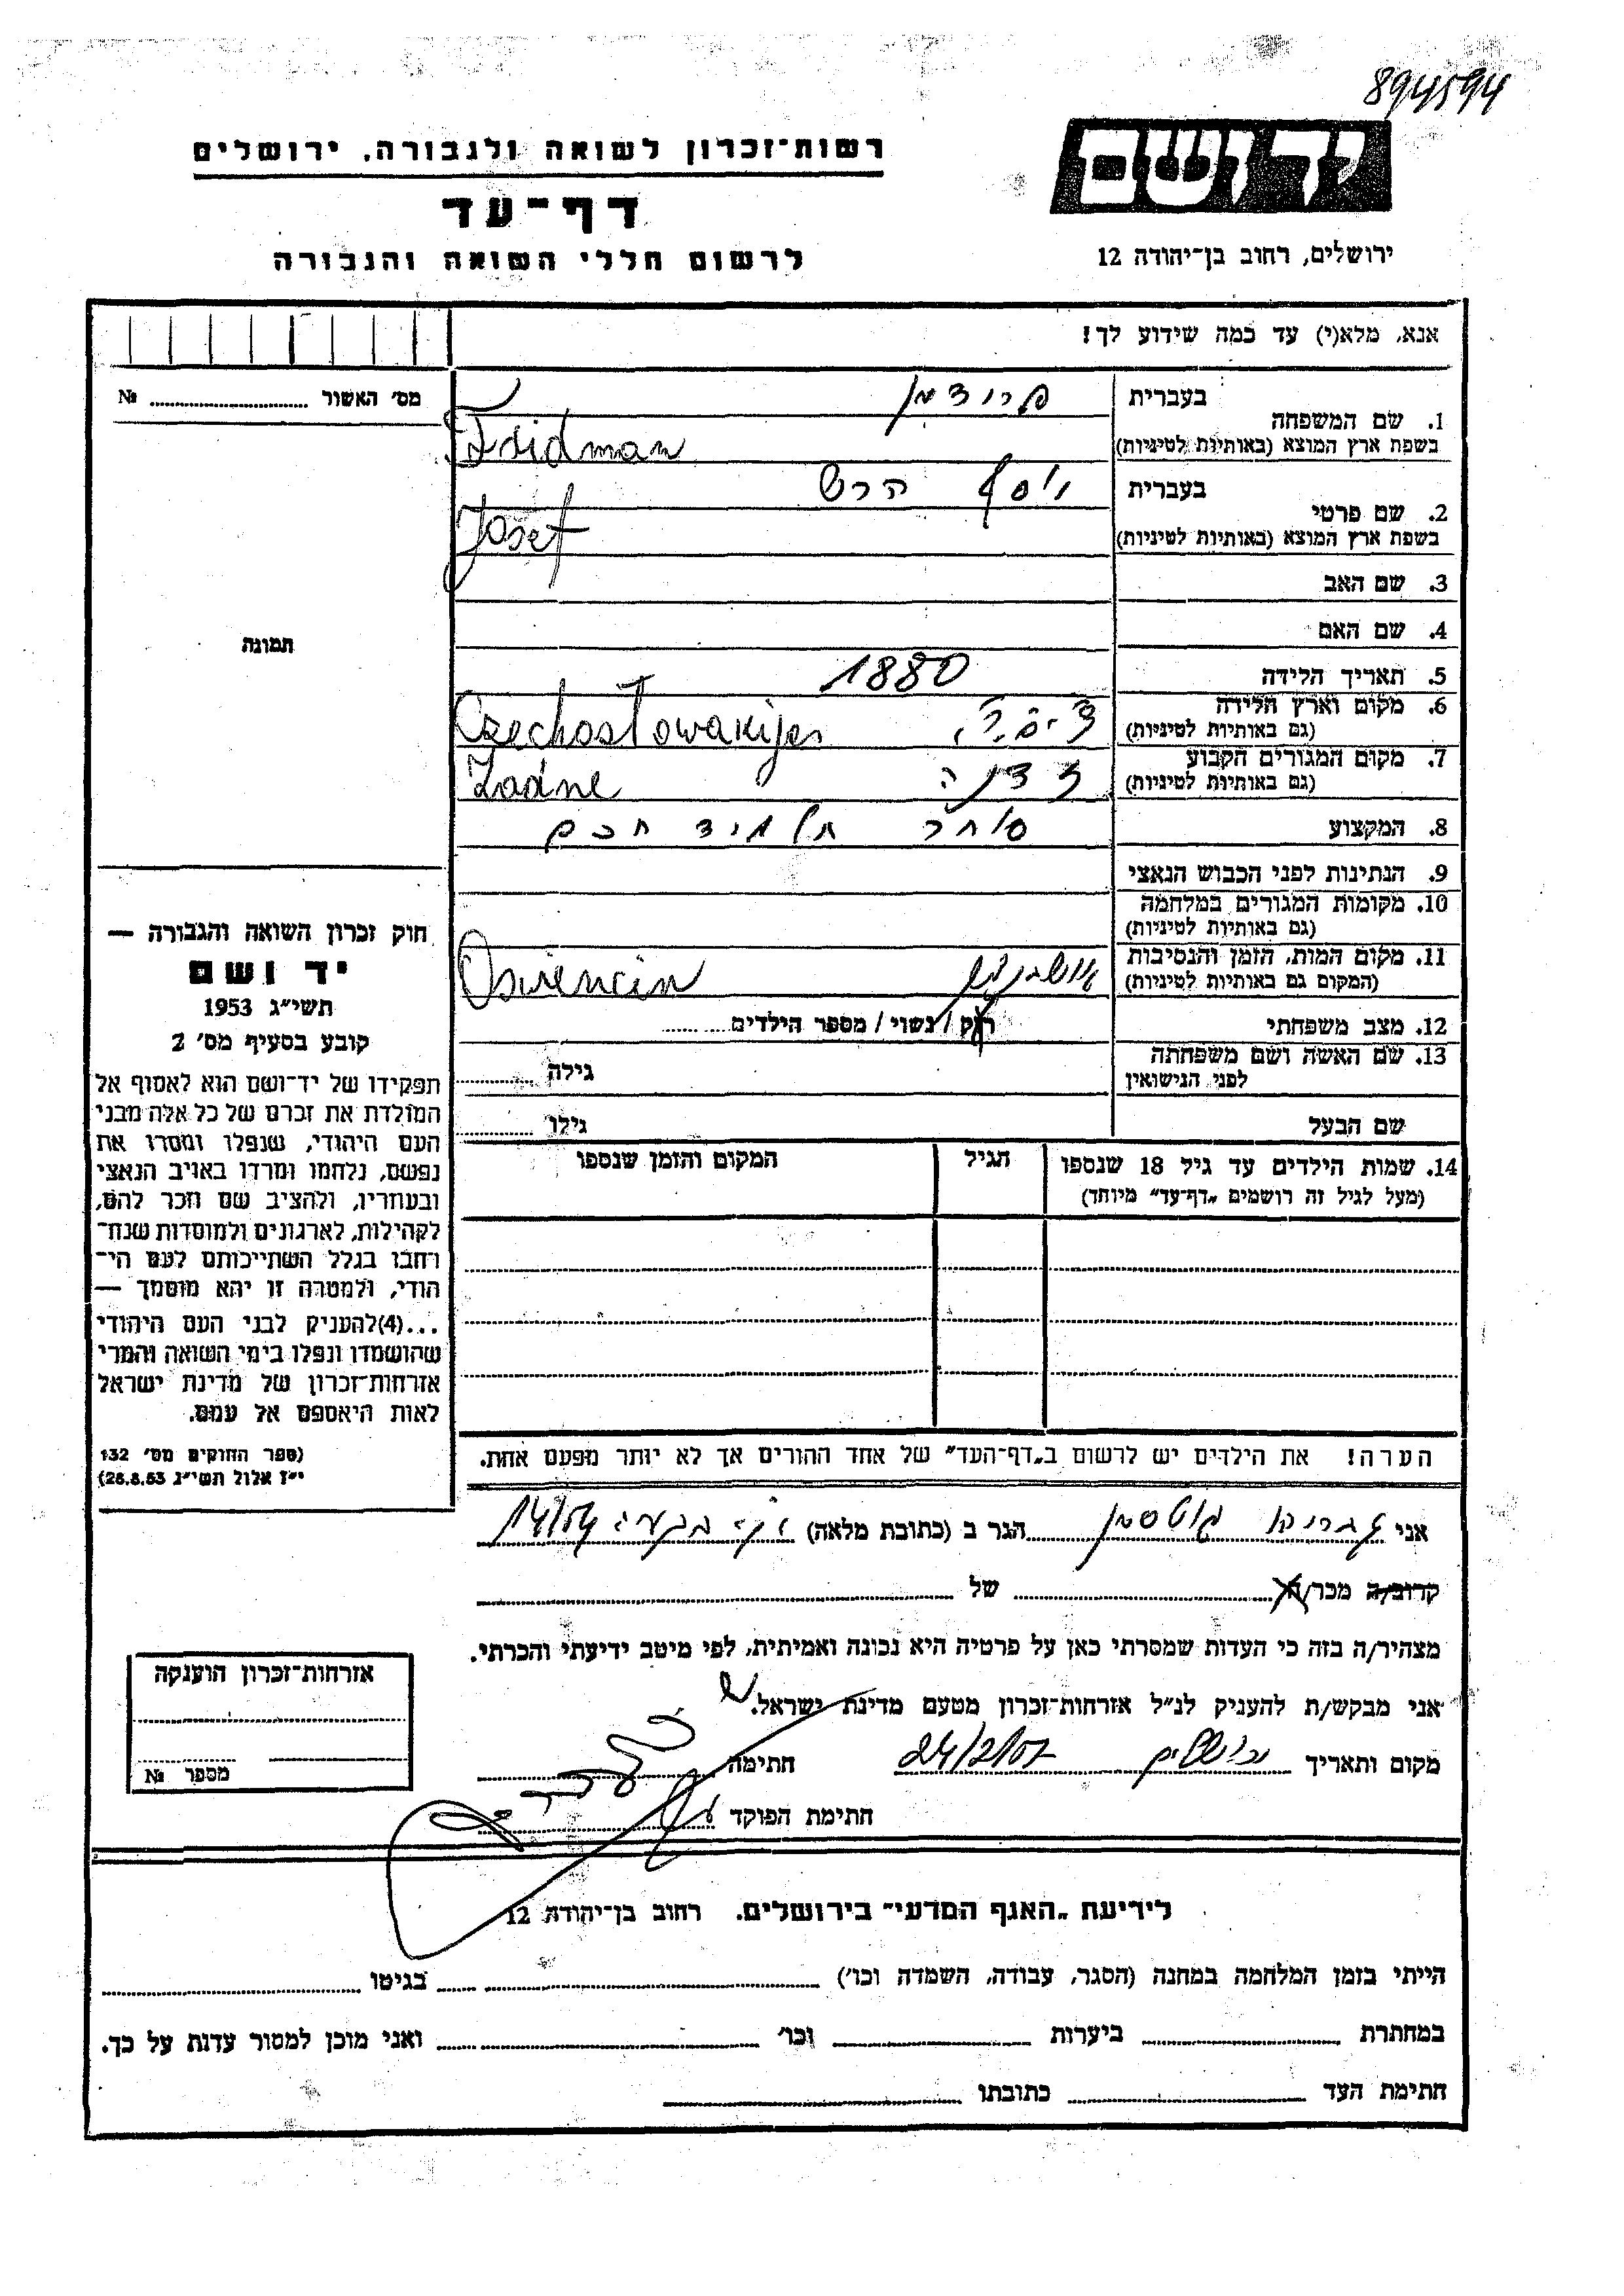 894594
יד ושם
רשות־זכרון לשואה ולגבורה, ירושלים
דף־עד
לרשום חללי השואה והגבורה
ירושלים, רחוב בן־יהודה 12
אנא, מלא(י) עד כמה שידוע לך!
מס' האשור №
תמונה
1. שם המשפחה
בעברית פרידמן
בשפת ארץ המוצא (באותיות לטיניות) Fridman
2. שם פרטי
בעברית יוסף הרש
בשפת ארץ המוצא (באותיות לטיניות) Josef
3. שם האב
4. שם האם
5. תאריך הלידה 1880
6. מקום וארץ הלידה
(גם באותיות לטיניות) Czechosłowakija
7. מקום המגורים הקבוע זדנה
(גם באותיות לטיניות) Zadne
8. המקצוע סוחר תלמיד חכם
9. הנתינות לפני הכבוש הנאצי
10. מקומות המגורים במלחמה
(גם באותיות לטיניות)
11. מקום המות, הזמן והנסיבות אושביץ
(המקום גם באותיות לטיניות) Oswiencin
12. מצב משפחתי רוק / נשוי / מספר הילדים
13. שם האשה ושם משפחתה
לפני הנישואין גילה
שם הבעל גילו
14. שמות הילדים עד גיל 18 שנספו הגיל המקום והזמן שנספו
(מעל לגיל זה רושמים „דף־עד” מיוחד)
הערה! את הילדים יש לרשום ב„דף־העד” של אחד ההורים אך לא יותר מפעם אחת.
חוק זכרון השואה והגבורה —
יד ושם
תשי״ג 1953
קובע בסעיף מס' 2
תפקידו של יד־ושם הוא לאסוף אל
המולדת את זכרם של כל אלה מבני
העם היהודי, שנפלו ומסרו את
נפשם, נלחמו ומרדו באויב הנאצי
ובעוזריו, ולהציב שם וזכר להם,
לקהילות, לארגונים ולמוסדות שנח־
רבו בגלל השתייכותם לעם הי־
הודי, ולמטרה זו יהא מוסמך —
...(4)להעניק לבני העם היהודי
שהושמדו ונפלו בימי השואה והמרי
אזרחות־זכרון של מדינת ישראל
לאות היאספם אל עמם.
(ספר החוקים מס' 132
י״ז אלול תשי״ג 28.8.53)
אני גוטסמן הגר ב (כתובת מלאה) 14/54
קרוב/ה מכר/ה של
מצהיר/ה בזה כי העדות שמסרתי כאן על פרטיה היא נכונה ואמיתית, לפי מיטב ידיעתי והכרתי.
אני מבקש/ת להעניק לנ״ל אזרחות־זכרון מטעם מדינת ישראל.
מקום ותאריך ירושלים 24/2/57 חתימה
חתימת הפוקד
אזרחות־זכרון הוענקה
מספר №
לידיעת „האגף המדעי” בירושלים, רחוב בן־יהודה 12
הייתי בזמן המלחמה במחנה (הסגר, עבודה, השמדה וכו') בגיטו
במחתרת ביערות וכו' ואני מוכן למסור עדות על כך.
חתימת העד כתובתו